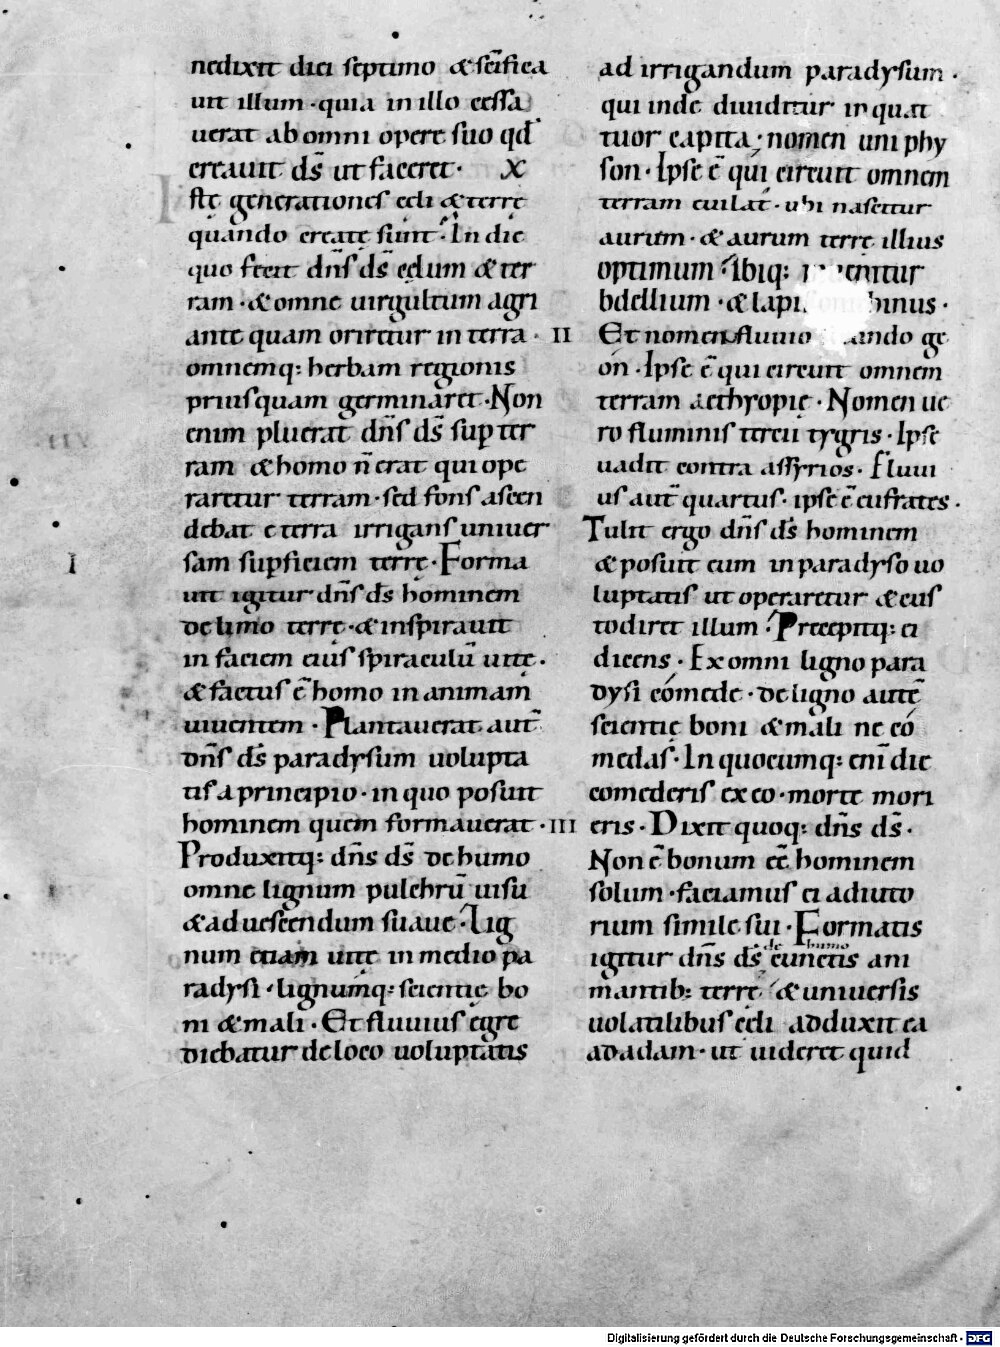 nedixit diei septimo & sc̄ifica
uit illum · quia in illo cessa
uerat ab omni opere suo qđ
creauit d̄s ut faceret · X
Istę generationes cęli & terrę
quando creatę sunt · In die
quo fecit dn̄s d̄s cęlum & ter
ram · & omne uirgultum agri
ante quam oriretur in terra · II
omnemq: herbam regionis
priusquam germinaret · Non
enim pluerat dn̄s d̄s sup ter
ram & homo n̄ erat qui ope
raretur terram · sed fons ascen
debat e terra irrigans uniuer
I
sam supficiem terrę · Forma
uit igitur dn̄s d̄s hominem
de limo terrę · & inspirauit
in faciem eius spiraculū uitę ·
& factus ē homo in animam
uiuentem · Plantauerat aut̄
dn̄s d̄s paradysum uolupta
tis a principio · in quo posuit
hominem quem formauerat · III
Produxitq: dn̄s d̄s de humo
omne lignum pulchrū uisu
& ad uescendum suaue · Lig
num etiam uitę in medio pa
radysi · lignumq: scientię bo
ni & mali · Et fluuius egre
diebatur de loco uoluptatis
ad irrigandum paradysum ·
qui inde diuiditur in quat
tuor capita · nomen uni phy
son · Ipse ē qui circuit omnem
terram euilat · ubi nascitur
aurum · & aurum terrę illius
optimum · Ibiq: inuenitur
bdellium · & lapi hinus ·
Et nomen fluuio ando ge
on · Ipse ē qui circuit omnem
terram aethyopię · Nomen ue
ro fluminis tercii tygris · Ipse
uadit contra assyrios · Fluui
us aut̄ quartus · ipse ē eufrates ·
Tulit ergo dn̄s d̄s hominem
& posuit eum in paradyso uo
luptatis ut operaretur & cus
todiret illum · Precepitq: ei
dicens · Ex omni ligno para
dysi cómede · de ligno autē
scientię boni & mali ne có
medas · In quocumq: eni̅ die
comederis ex eo · morte mori
eris · Dixit quoq: dn̄s d̄s ·
Non ē bonum eē hominem
solum · faciamus ei adiuto
rium simile sui · Formatis
de humo
igitur dn̄s d̄s cunctis ani
mantib: terrę & uniuersis
uolatilibus cęli adduxit ea
ad adam · ut uideret quid
Digitalisierung gefördert durch die Deutsche Forschungsgemeinschaft · DFG